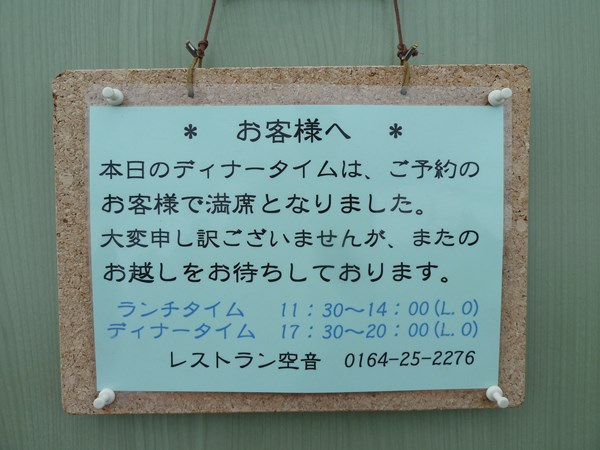 * お客様へ *
本日のディナータイムは、ご予約の
お客様で満席となりました。
大変申し訳ございませんが、またの
お越しをお待ちしております。
ランチタイム 11：30～14：00(L.O)
ディナータイム 17：30～20：00(L.O)
レストラン空音 0164-25-2276